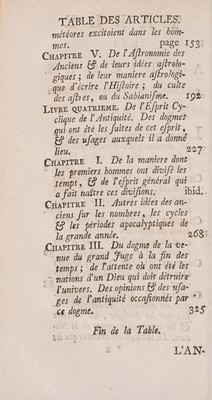 TABLE DES ARTICLES.
météores excitoient dans les hom-
mes. page 153
CHAPITRE V. De l'Astronomie des
Anciens & de leurs idées astrolo-
giques ; de leur maniere astrologi-
que d'écrire l'Histoire ; du culte
des astres, ou du Sabianisme. 192
LIVRE QUATRIEME. De l'Esprit Cy-
clique de l'Antiquité. Des dogmes
qui ont été les suites de cet esprit,
& des usages auxquels il a donné
lieu. 227
CHAPITRE I. De la maniere dont
les premiers hommes ont divisé les
temps, & de l'esprit général qui
a fait naître ces divisions, ibid.
CHAPITRE II. Autres idées des an-
ciens sur les nombres, les cycles
& les périodes apocalyptiques de
la grande année. 268
CHAPITRE III. Du dogme de la ve-
nue du grand Juge à la fin des
temps ; de l'attente où ont été les
nations d'un Dieu qui doit détruire
l'univers. Des opinions & des usa-
ges de l'antiquité occasionnés par
ce dogme. 325
Fin de la Table.
L'AN-